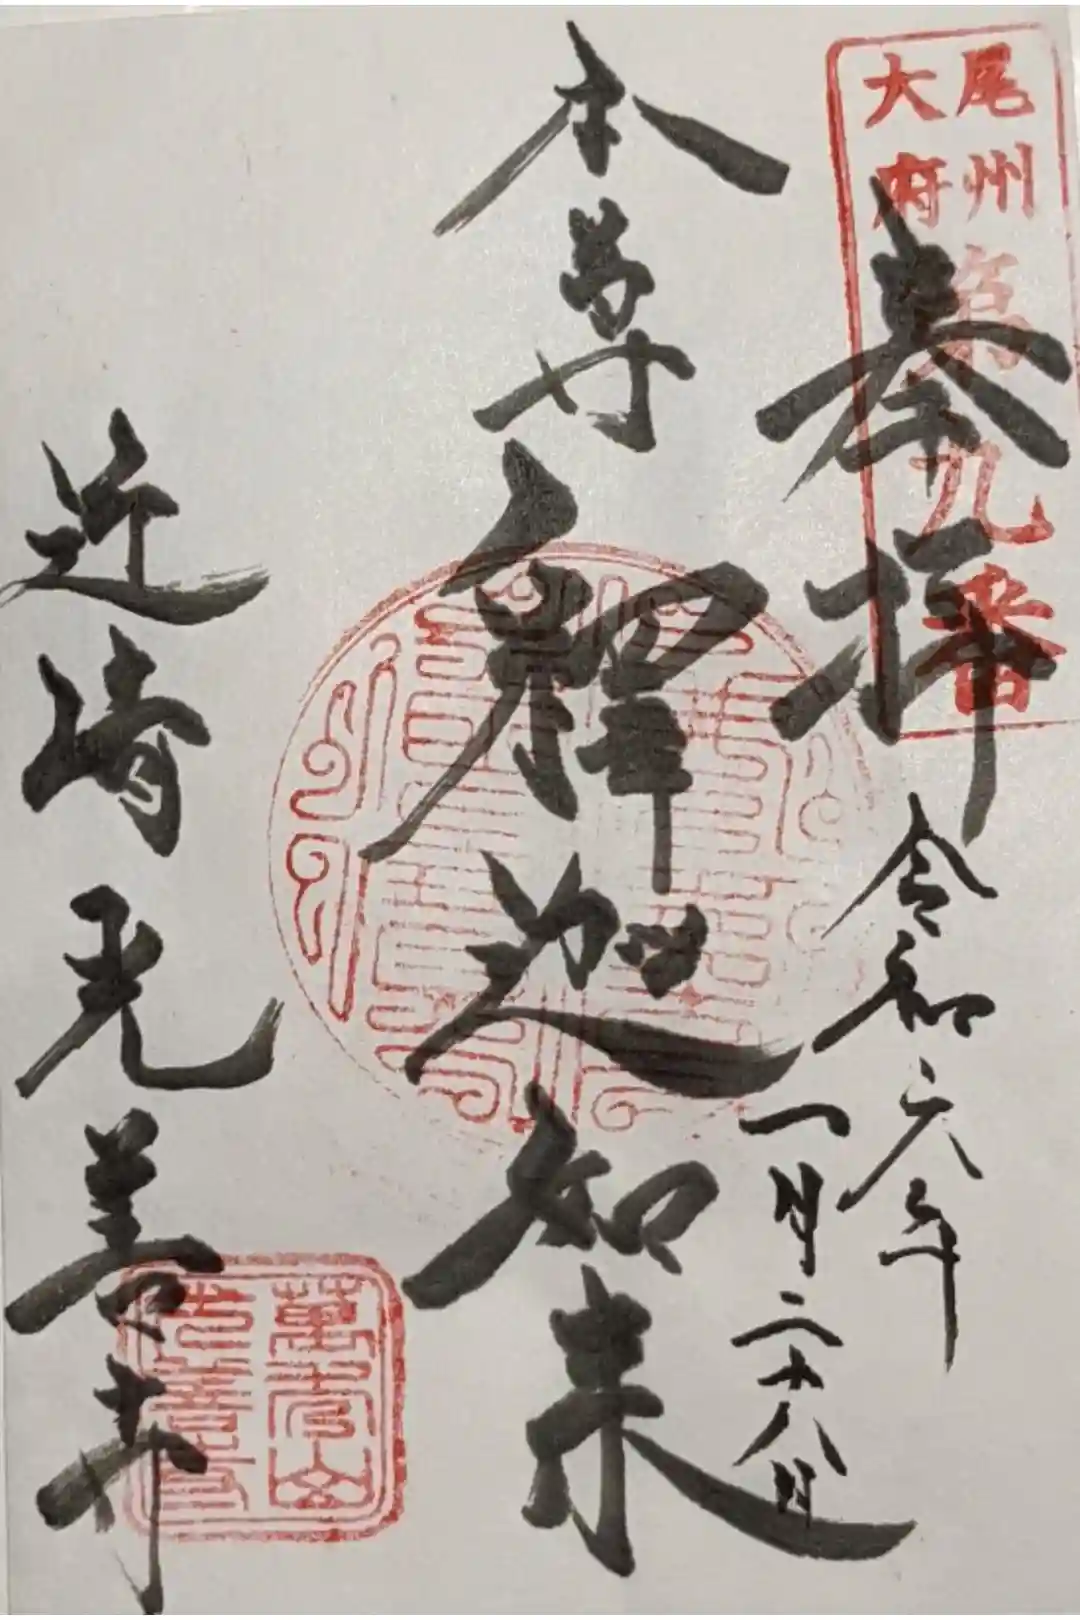 尾州
大府
第九番
奉拝
令和六年
一月二十八日
本尊
釋迦如来
近崎光善寺
萬嵩山
光善寺